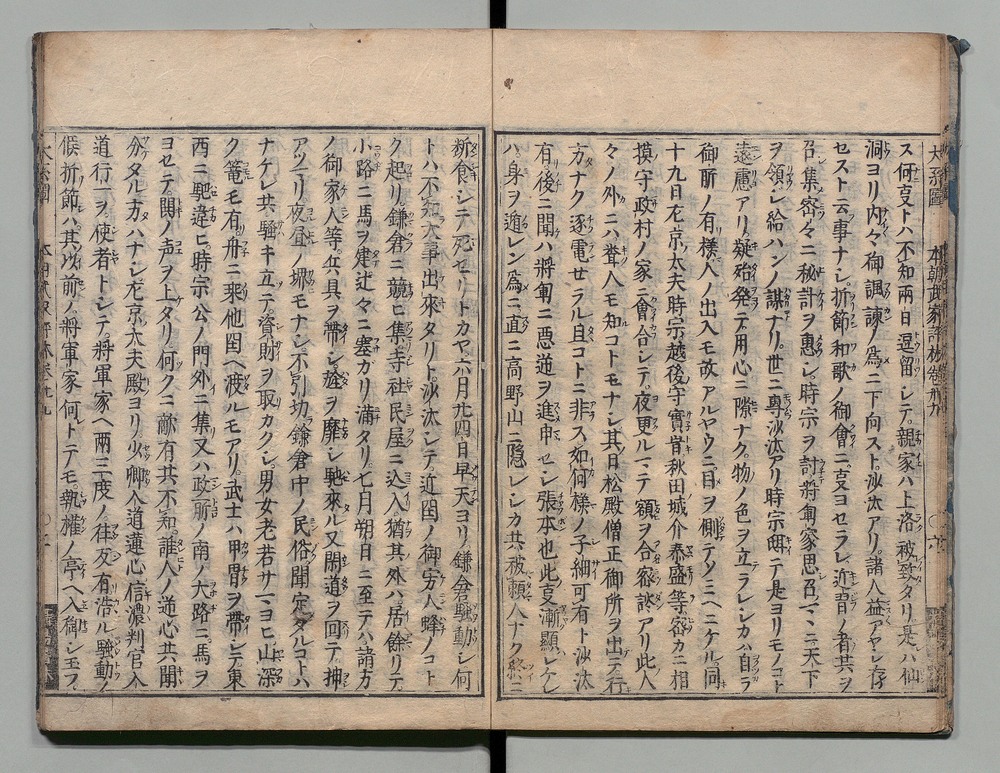 本朝武家評林巻卅九
ス何事トハ不知両日逗留シテ親家ハ上洛被致タリ是ハ仙
洞ヨリ内々御諷諫ノ為ニ下向スト沙汰アリ諸人益アヤシ存
セスト云事ナシ折節和歌ノ御會ニ事ヨセラレ近習ノ者共ヲ
召集密々ニ秘計ヲ惠シ時宗ヲ討将軍家思召マヽニ天下
ヲ領シ給ハンノ謀ナリ世ニ専沙汰アリ時宗聞テ是ヨリモノコト
遠慮アリ疑殆発テ用心ニ隙ナク物ノ色ヲ立ラレシカハ自ラ
御所ノ有様人ノ出入モ故アルヤウニ目ヲ側テソミヘニケル同
十九日左京太夫時宗越後守實時秋田城介泰盛等密カニ相
摸守政村ノ家ニ會合シテ夜更ルマテ額ヲ合密談アリ此人
々ノ外ニハ聟人モ知コトモナシ其日松殿僧正御所ヲ出テ行
方ナク逐電セラル且コトニ非ス如何様ノ子細可有ト沙汰
有後ニ聞ハ将軍ニ悪逆ヲ進申セシ張本也此事漸顕シケレ
ハ身ヲ遁レン為ニ直ニ高野山ニ隠レシカ共被頼人ナク終ニ
断食シテ死セリトカヤ六月廿四日早天ヨリ鎌倉騒動シ何
トハ不知大事出來タリト沙汰シテ近国ノ御家人蜂ノコト
ク起リ鎌倉ニ競ヒ集寺社民屋ニ込入猶其外ハ居餘リテ
小路ニ馬ヲ建辻々ニ塞カリ満タリ七月朔日ニ至テハ諸方
ノ御家人等兵具ヲ帯シ旌ヲ靡シ馳來ル又閑道ヲ回テ押
アツリ夜昼ノ堺モナシ不引功鎌倉中ノ民俗聞定タルコトハ
ナケレ共騒キ立テ資財ヲ取カクシ男女老若サマヨヒ山深
ク篭モ有舟ニ乗他国ヘ渡ルモアリ武士ハ甲冑ヲ帯シテ東
西ニ馳違ヒ時宗公ノ門外ニ集又ハ政所ノ南ノ大路ニ馬ヲ
ヨセテ鬨ノ声ヲ上タリ何クニ敵有共不知誰人ノ逆心共聞
分タル方ハナシ左京太夫殿ヨリ少卿入道蓮心信濃判官入
道行一ヲ使者トシテ将軍家ヘ両三度ノ往反有浩ル騒動ノ
候折節ハ其以前ノ将軍家何レトテモ執權ノ亭ヘ入御シ玉フ